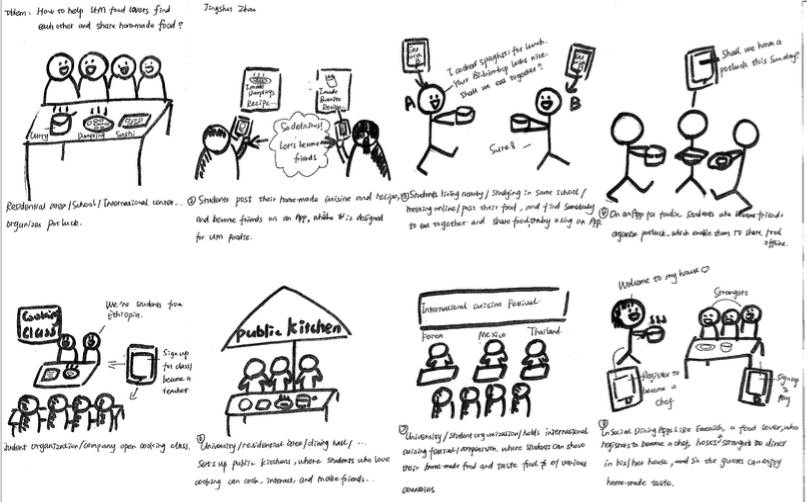 How to help UM food lovers find
each other and share homemade food?
Jingshu Zhou
Curry Dumpling Sushi
Residential area/School/International center...
organizes potluck.
I made Dumplings
Recipe...
I made Burrito
Recipe...
So delicious!
Let's become
friends
Students post their home-made cuisine and recipe,
and become friends on an App, which is designed
for UM foodie.
I cooked spaghetti for lunch.
Your Bibimbap looks nice.
Shall we eat together?
A
B
Sure!
Students living nearby/studying in same school/
meeting online/post their food, and find somebody
to eat together and share food, by using an App.
Shall we have a
potluck this Sunday?
On an App for foodie, students who become friends
organize potluck, which enable them to share food
offline.
Cooking
Class
We're students from
Ethiopia.
Sign up
for class/
become a
teacher
Student organization/company open cooking class.
public kitchen
University/residential area/dining hall/...
sets up public kitchens, where students who love
cooking can cook, interact, and make friends..
International cuisine Festival
Mexico Thailand
University/student organization/holds international
cuisine festival/competition, where students can show
their home-made food and taste food of various
countries
Welcome to my house
Strangers
Register to
become a
chef
Sign up
&
Pay
In Social Dining Apps like a food lover, who
registers to become a chef, hosts strangers to dinner
in his/her house, and so the guests can enjoy
home-made taste.